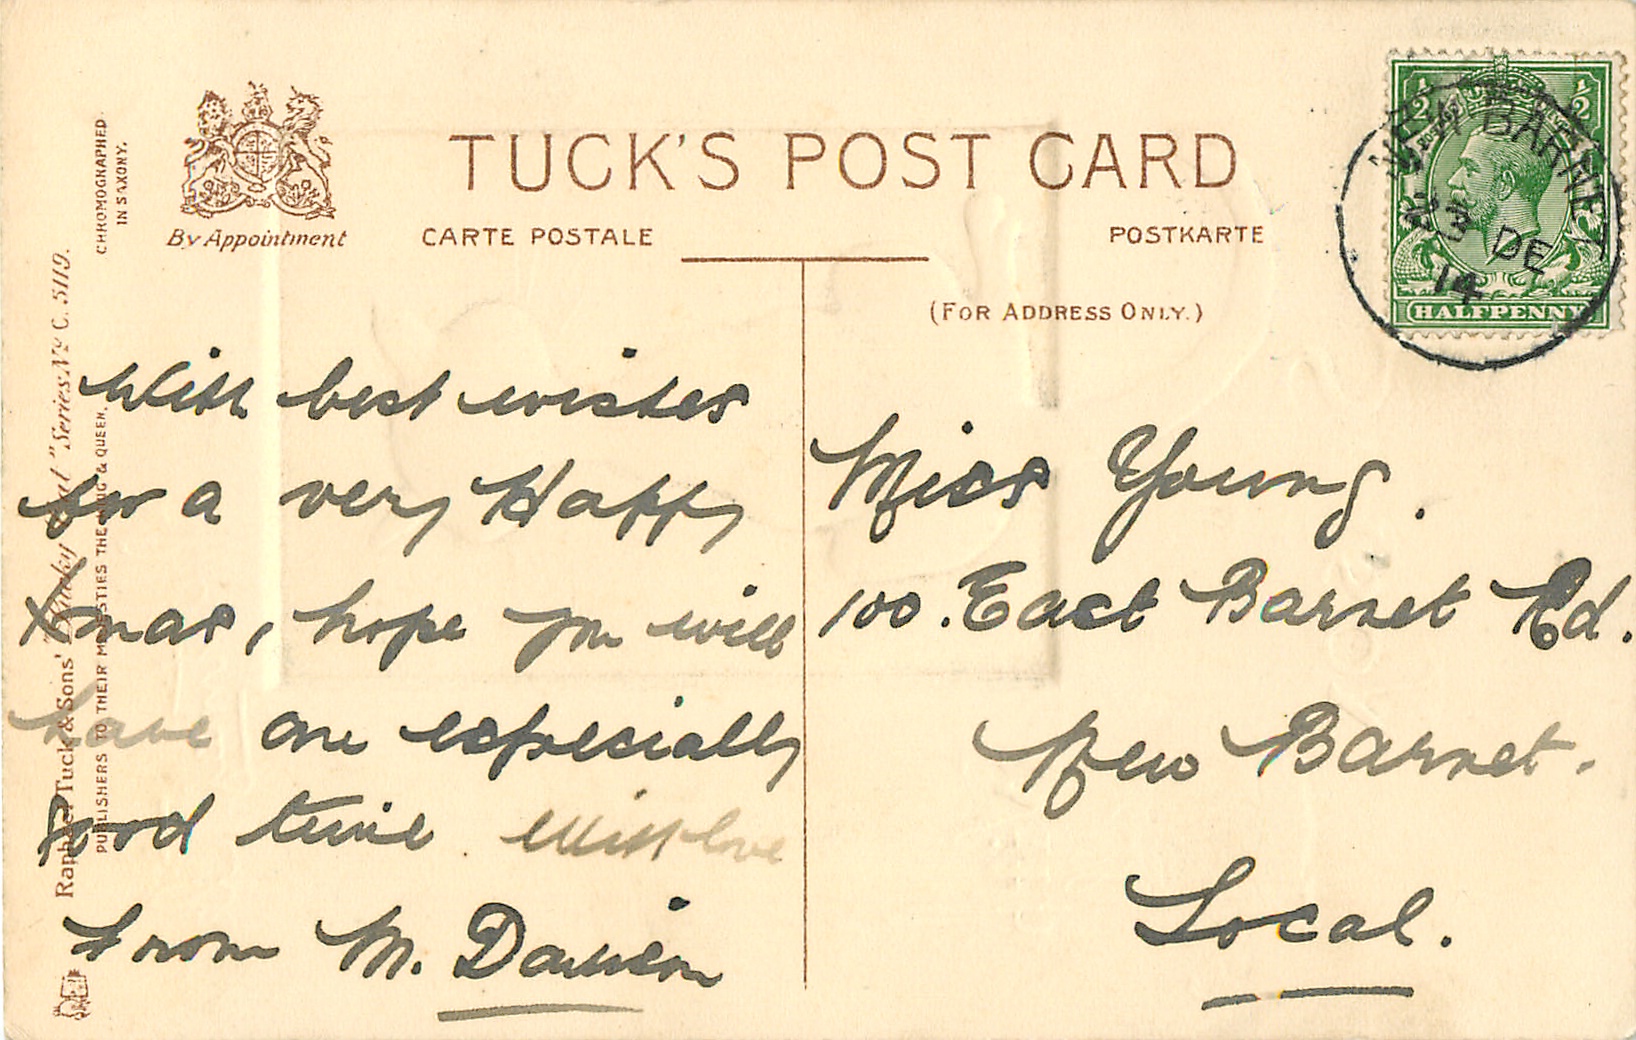 TUCK'S POST CARD
CARTE POSTALE
POSTKARTE
(FOR ADDRESS ONLY.)
By Appointment
CHROMOGRAPHED
IN SAXONY.
Raphael Tuck & Sons' "Series Nº C. 5119.
PUBLISHERS TO THEIR MAJESTIES THE KING & QUEEN.
NEW BARNET
23 DE
14
½ ½
HALFPENNY
With best wishes
for a very Happy
Xmas, hope you will
have one especially
good time with love
from M.
Miss Young.
100. East Barnet Rd.
New Barnet.
Local.